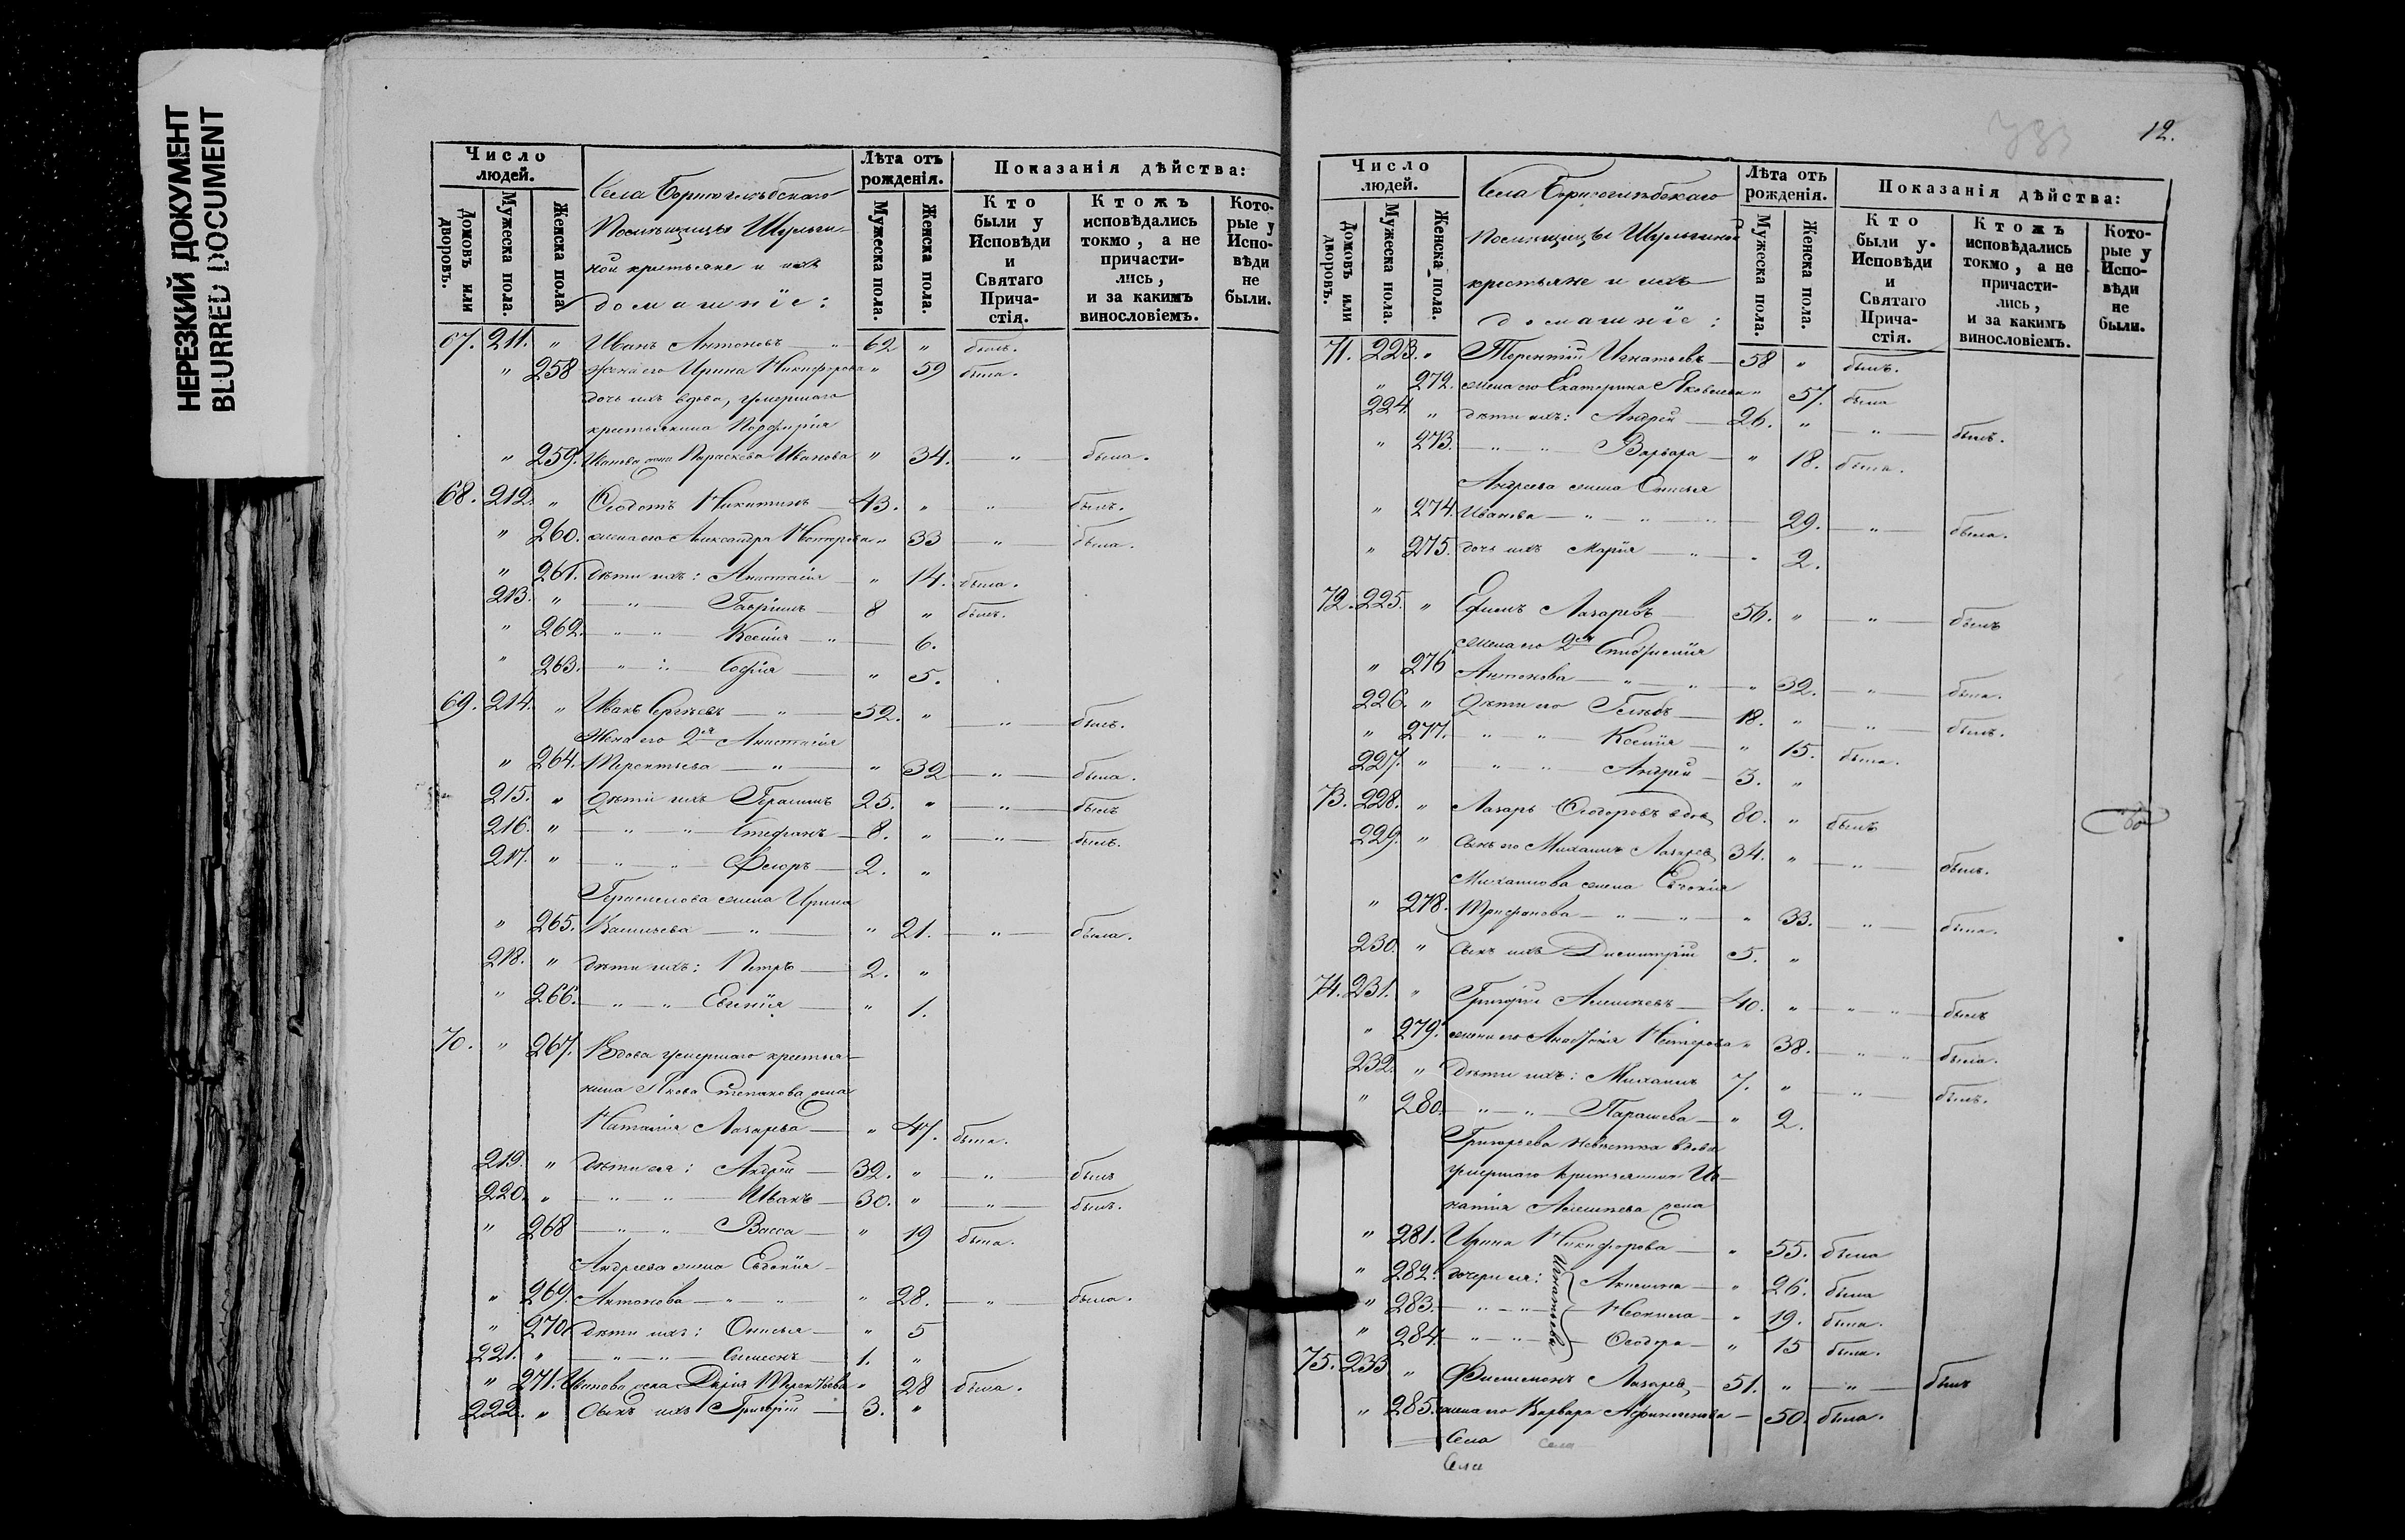 НЕРЕЗКИЙ ДОКУМЕНТ
BLURRED DOCUMENT
Число людей.
Домовъ или дворовъ.
Мужеска пола.
Женска пола.
Села Борисоглѣбскаго
Помѣщицы Шульги-
ной крестьяне и ихъ
домашніе:
Лѣта отъ рожденія.
Мужеска пола.
Женска пола.
Показанія дѣйства:
Кто были у Исповѣди и Святаго Прича-стія.
Ктожъ исповѣдались токмо, а не причасти-лись, и за какимъ винословіемъ.
Кото-рые у Испо-вѣди не были.
67. 211. " Иванъ Антоновъ — " 62 " былъ.
" 258 жена его Ирина Никифорова " 59 была.
дочь ихъ вдова, умершаго
крестьянина Порфирія
" 259. Иванова жена Параскева Иванова " 34. — " — была.
68. 212. " Ѳедотъ Никитинъ — 43. " " былъ.
" 260. жена его Александра Несторова " 33 — " — была.
" 261. дѣти ихъ: Анастасія — " 14. была.
213. " — " — Гавріилъ — 8 " былъ.
" 262. — " — " — Ксенія — " — 6.
" 263. — " — Софія — " 5.
69. 214. " Иванъ Сергѣевъ — " — 52. " — " — былъ.
Жена его 2я Анастасія
" 264. Терентьева — " — " 32 — " — была.
215. " Дѣти ихъ Герасимъ 25. " — " — былъ
216. " — " — " — Стефанъ — 8. " — " — былъ.
217. " — " — " — Флоръ — 2. "
Герасимова жена Ирина
" 265. Васильева — " — " 21. — " — была.
218. " дѣти ихъ: Петръ — 2. "
" 266. — " — " — Евгенія — " 1.
70. " 267. Вдова умершаго крестья-
нина Якова Степанова жена
Наталія Лазарева — " 47. была.
219. " дѣти ея: Андрей — 32. " — " — былъ
220. " — " — " — Иванъ — 30. " — " — былъ.
" 268 — " — " — Васса — " 19 была.
Андреева жена Евдокія —
" 269. Антонова — " — " " 28. — " — была.
" 270. дѣти ихъ: Онисья — " 5
221. " — " — " — Симеонъ — 1. "
" 271. Иванова жена Дарія Терентьева " 28 была.
222. " Сынъ ихъ Григорій — 3. "
12.
Число людей.
Домовъ или дворовъ.
Мужеска пола.
Женска пола.
Села Борисоглѣбскаго
Помѣщицы Шульгиной
крестьяне и ихъ
домашніе:
Лѣта отъ рожденія.
Мужеска пола.
Женска пола.
Показанія дѣйства:
Кто были у Исповѣди и Святаго Прича-стія.
Ктожъ исповѣдались токмо, а не причасти-лись, и за какимъ винословіемъ.
Кото-рые у Испо-вѣди не были.
71. 223. " Терентій Игнатьевъ — 58 " былъ.
" 272. жена его Екатерина Яковлева " 57. была
224. " дѣти ихъ: Андрей — 26. " — " — былъ.
" 273. — " — " — Варвара — " 18. была.
Андреева жена Онисья
" 274. Иванова — " — " — " — 29. — " — была.
" 275. дочь ихъ Марія — " — " 2.
72. 225. " Ефимъ Лазаревъ — 56. " — " — былъ
жена его 2я Епифминія
" 276 Антонова — " — " — " 32. — " — была.
226. " Дѣти его Глѣбъ — 18. " — " — былъ.
" 277. — " — " — Ксенія — " 15. была.
227. " " — " — Андрей — 3. "
73. 228. " Лазарь Ѳедоровъ вдов. 80. " былъ
229. " Сынъ его Михаилъ Лазарев. 34. " — " — былъ.
Михаилова жена Евдокія
" 278. Трифонова — " — " — " 33. — " — была.
230. " Сынъ ихъ Димитрій 5. "
74. 231. " Григорій Алексѣевъ — 40. " — " — " былъ
" 279. жена его Несторова " 38. — " — " — была.
232. " Дѣти ихъ: Михаилъ 7. " — " — былъ.
" 280. — " — " — Парасева — " 2.
Григорьева невѣстка вдова
умершаго крестьянина Иг-
натія Алексѣева жена
" 281. Ирина Никифорова — " 55. была
" 282. дочери ея: Игнатьевы Акилина — " 26. была
" 283. — " — " — Неонила — " 19. была.
" 284. — " — " — Ѳедора — " 15 была.
75. 233 " Филимонъ Лазарев. 51. " — " — былъ
" 285. жена его Варвара — 50. была.
Села
Села
Села